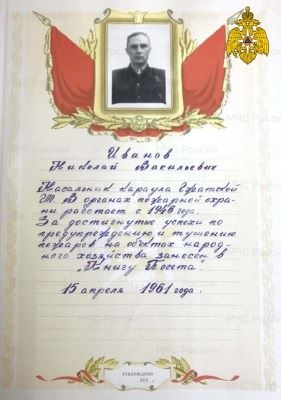 Иванов
Николай Васильевич
Начальник караула
В органах пожарной охра-
ны работает с 1946 года.
За достигнутые успехи по
предупреждению и тушению
пожаров на объектах народ-
ного хозяйства занесен в
"Книгу Почета".
15 апреля 1961 года.
УТВЕРЖДЕНО
МЧС России